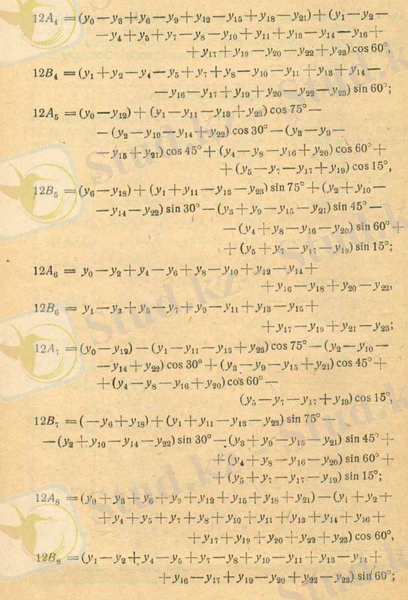 12A₄ = (y₀ — y₃ + y₆ — y₉ + y₁₂ — y₁₅ + y₁₈ — y₂₁) + (y₁ — y₂ —
— y₄ + y₅ + y₇ — y₈ — y₁₀ + y₁₁ + y₁₃ — y₁₄ — y₁₆ +
+ y₁₇ + y₁₉ — y₂₀ — y₂₂ + y₂₃) cos 60°,
12B₄ = (y₁ + y₂ — y₄ — y₅ + y₇ + y₈ — y₁₀ — y₁₁ + y₁₃ + y₁₄ —
— y₁₆ — y₁₇ + y₁₉ + y₂₀ — y₂₂ — y₂₃) sin 60°;
12A₅ = (y₀ — y₁₂) + (y₁ — y₁₁ — y₁₃ + y₂₃) cos 75° —
— (y₂ — y₁₀ — y₁₄ + y₂₂) cos 30° — (y₃ — y₉ —
— y₁₅ + y₂₁) cos 45° + (y₄ — y₈ — y₁₆ + y₂₀) cos 60° +
+ (y₅ — y₇ — y₁₇ + y₁₉) cos 15°,
12B₅ = (y₆ — y₁₈) + (y₁ + y₁₁ — y₁₃ — y₂₃) sin 75° + (y₂ + y₁₀ —
— y₁₄ — y₂₂) sin 30° — (y₃ + y₉ — y₁₅ — y₂₁) sin 45° —
— (y₄ + y₈ — y₁₆ — y₂₀) sin 60° +
+ (y₅ + y₇ — y₁₇ — y₁₉) sin 15°;
12A₆ = y₀ — y₂ + y₄ — y₆ + y₈ — y₁₀ + y₁₂ — y₁₄ +
+ y₁₆ — y₁₈ + y₂₀ — y₂₂,
12B₆ = y₁ — y₃ + y₅ — y₇ + y₉ — y₁₁ + y₁₃ — y₁₅ +
+ y₁₇ — y₁₉ + y₂₁ — y₂₃;
12A₇ = (y₀ — y₁₂) — (y₁ — y₁₁ — y₁₃ + y₂₃) cos 75° — (y₂ — y₁₀ —
— y₁₄ + y₂₂) cos 30° + (y₃ — y₉ — y₁₅ + y₂₁) cos 45° +
+ (y₄ — y₈ — y₁₆ + y₂₀) cos 60° —
(y₅ — y₇ — y₁₇ + y₁₉) cos 15°,
12B₇ = (— y₆ + y₁₈) + (y₁ + y₁₁ — y₁₃ — y₂₃) sin 75°
— (y₂ + y₁₀ — y₁₄ — y₂₂) sin 30° — (y₃ + y₉ — y₁₅ — y₂₁) sin 45° +
+ (y₄ + y₈ — y₁₆ — y₂₀) sin 60° +
+ (y₅ + y₇ — y₁₇ — y₁₉) sin 15°;
12A₈ = (y₀ + y₃ + y₆ + y₉ + y₁₂ + y₁₅ + y₁₈ + y₂₁) — (y₁ + y₂ +
+ y₄ + y₅ + y₇ + y₈ + y₁₀ + y₁₁ + y₁₃ + y₁₄ + y₁₆ +
+ y₁₇ + y₁₉ + y₂₀ + y₂₂ + y₂₃) cos 60°,
12B₈ = (y₁ — y₂ + y₄ — y₅ + y₇ — y₈ + y₁₀ — y₁₁ + y₁₃ — y₁₄ +
+ y₁₆ — y₁₇ + y₁₉ — y₂₀ + y₂₂ — y₂₃) sin 60°;